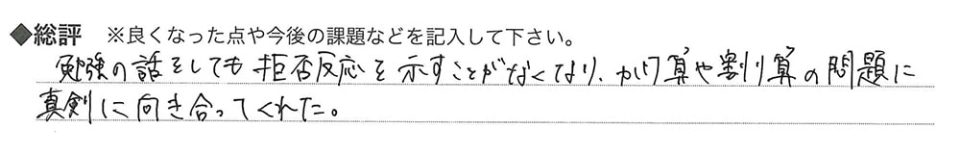 ◆総評 ※良くなった点や今後の課題などを記入して下さい。
勉強の話をしても拒否反応を示すことがなくなり、かけ算や割り算の問題に
真剣に向き合ってくれた。